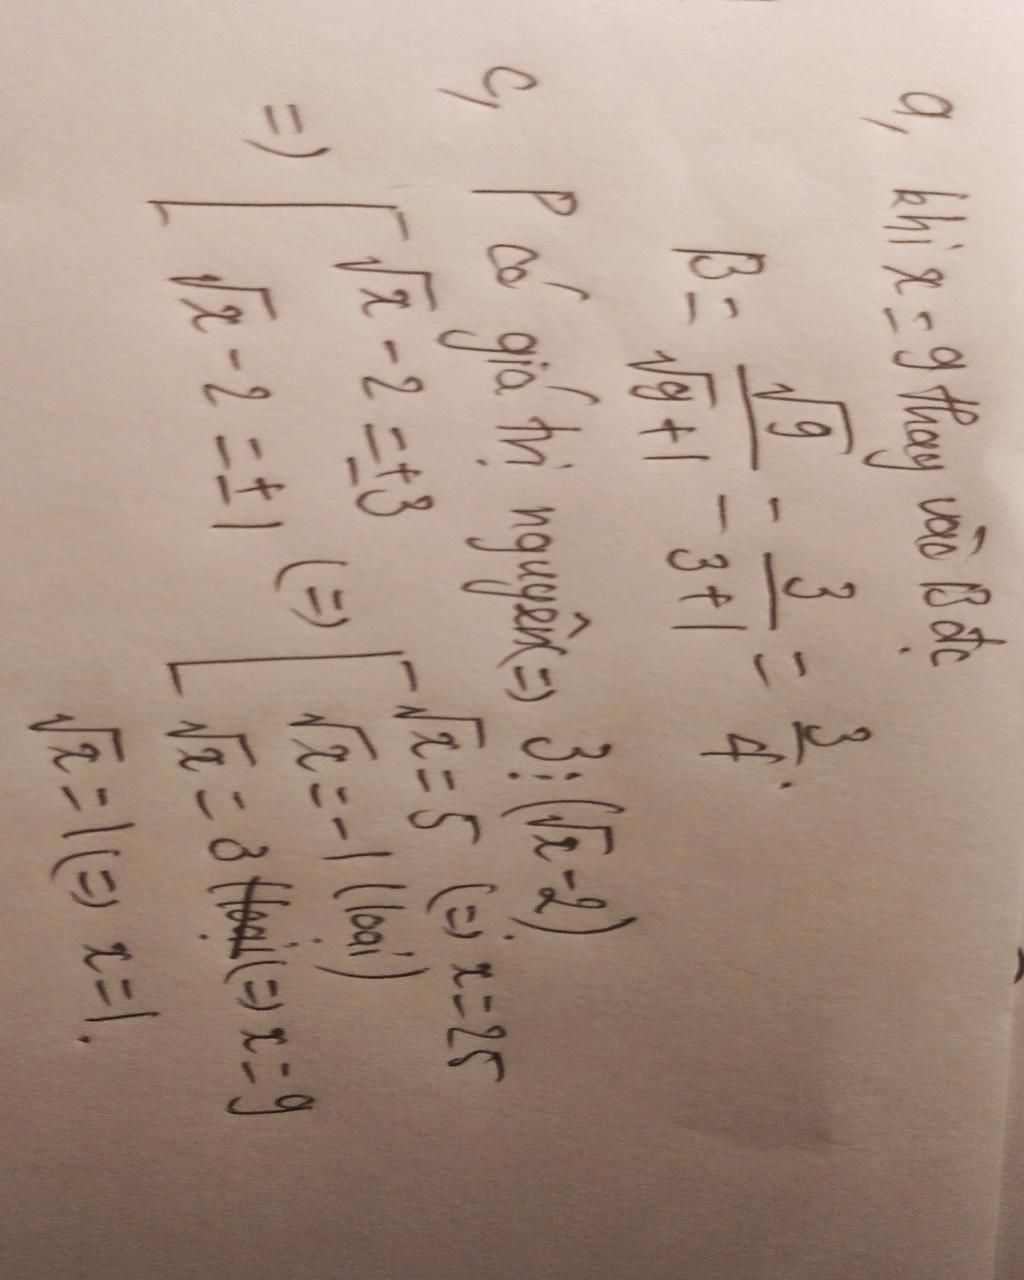 a, khi x = 9 thay vào B đc
B = √9 / √9+1 = 3 / 3+1 = 3/4.
c, P có giá trị nguyên (=) 3 ⋮ (√x - 2)
=) [ √x - 2 = ±3 (=) [ √x = 5 (=) x = 25
√x = -1 (loại)
√x - 2 = ±1 √x = 3 (loại (=) x = 9
√x = 1 (=) x = 1.